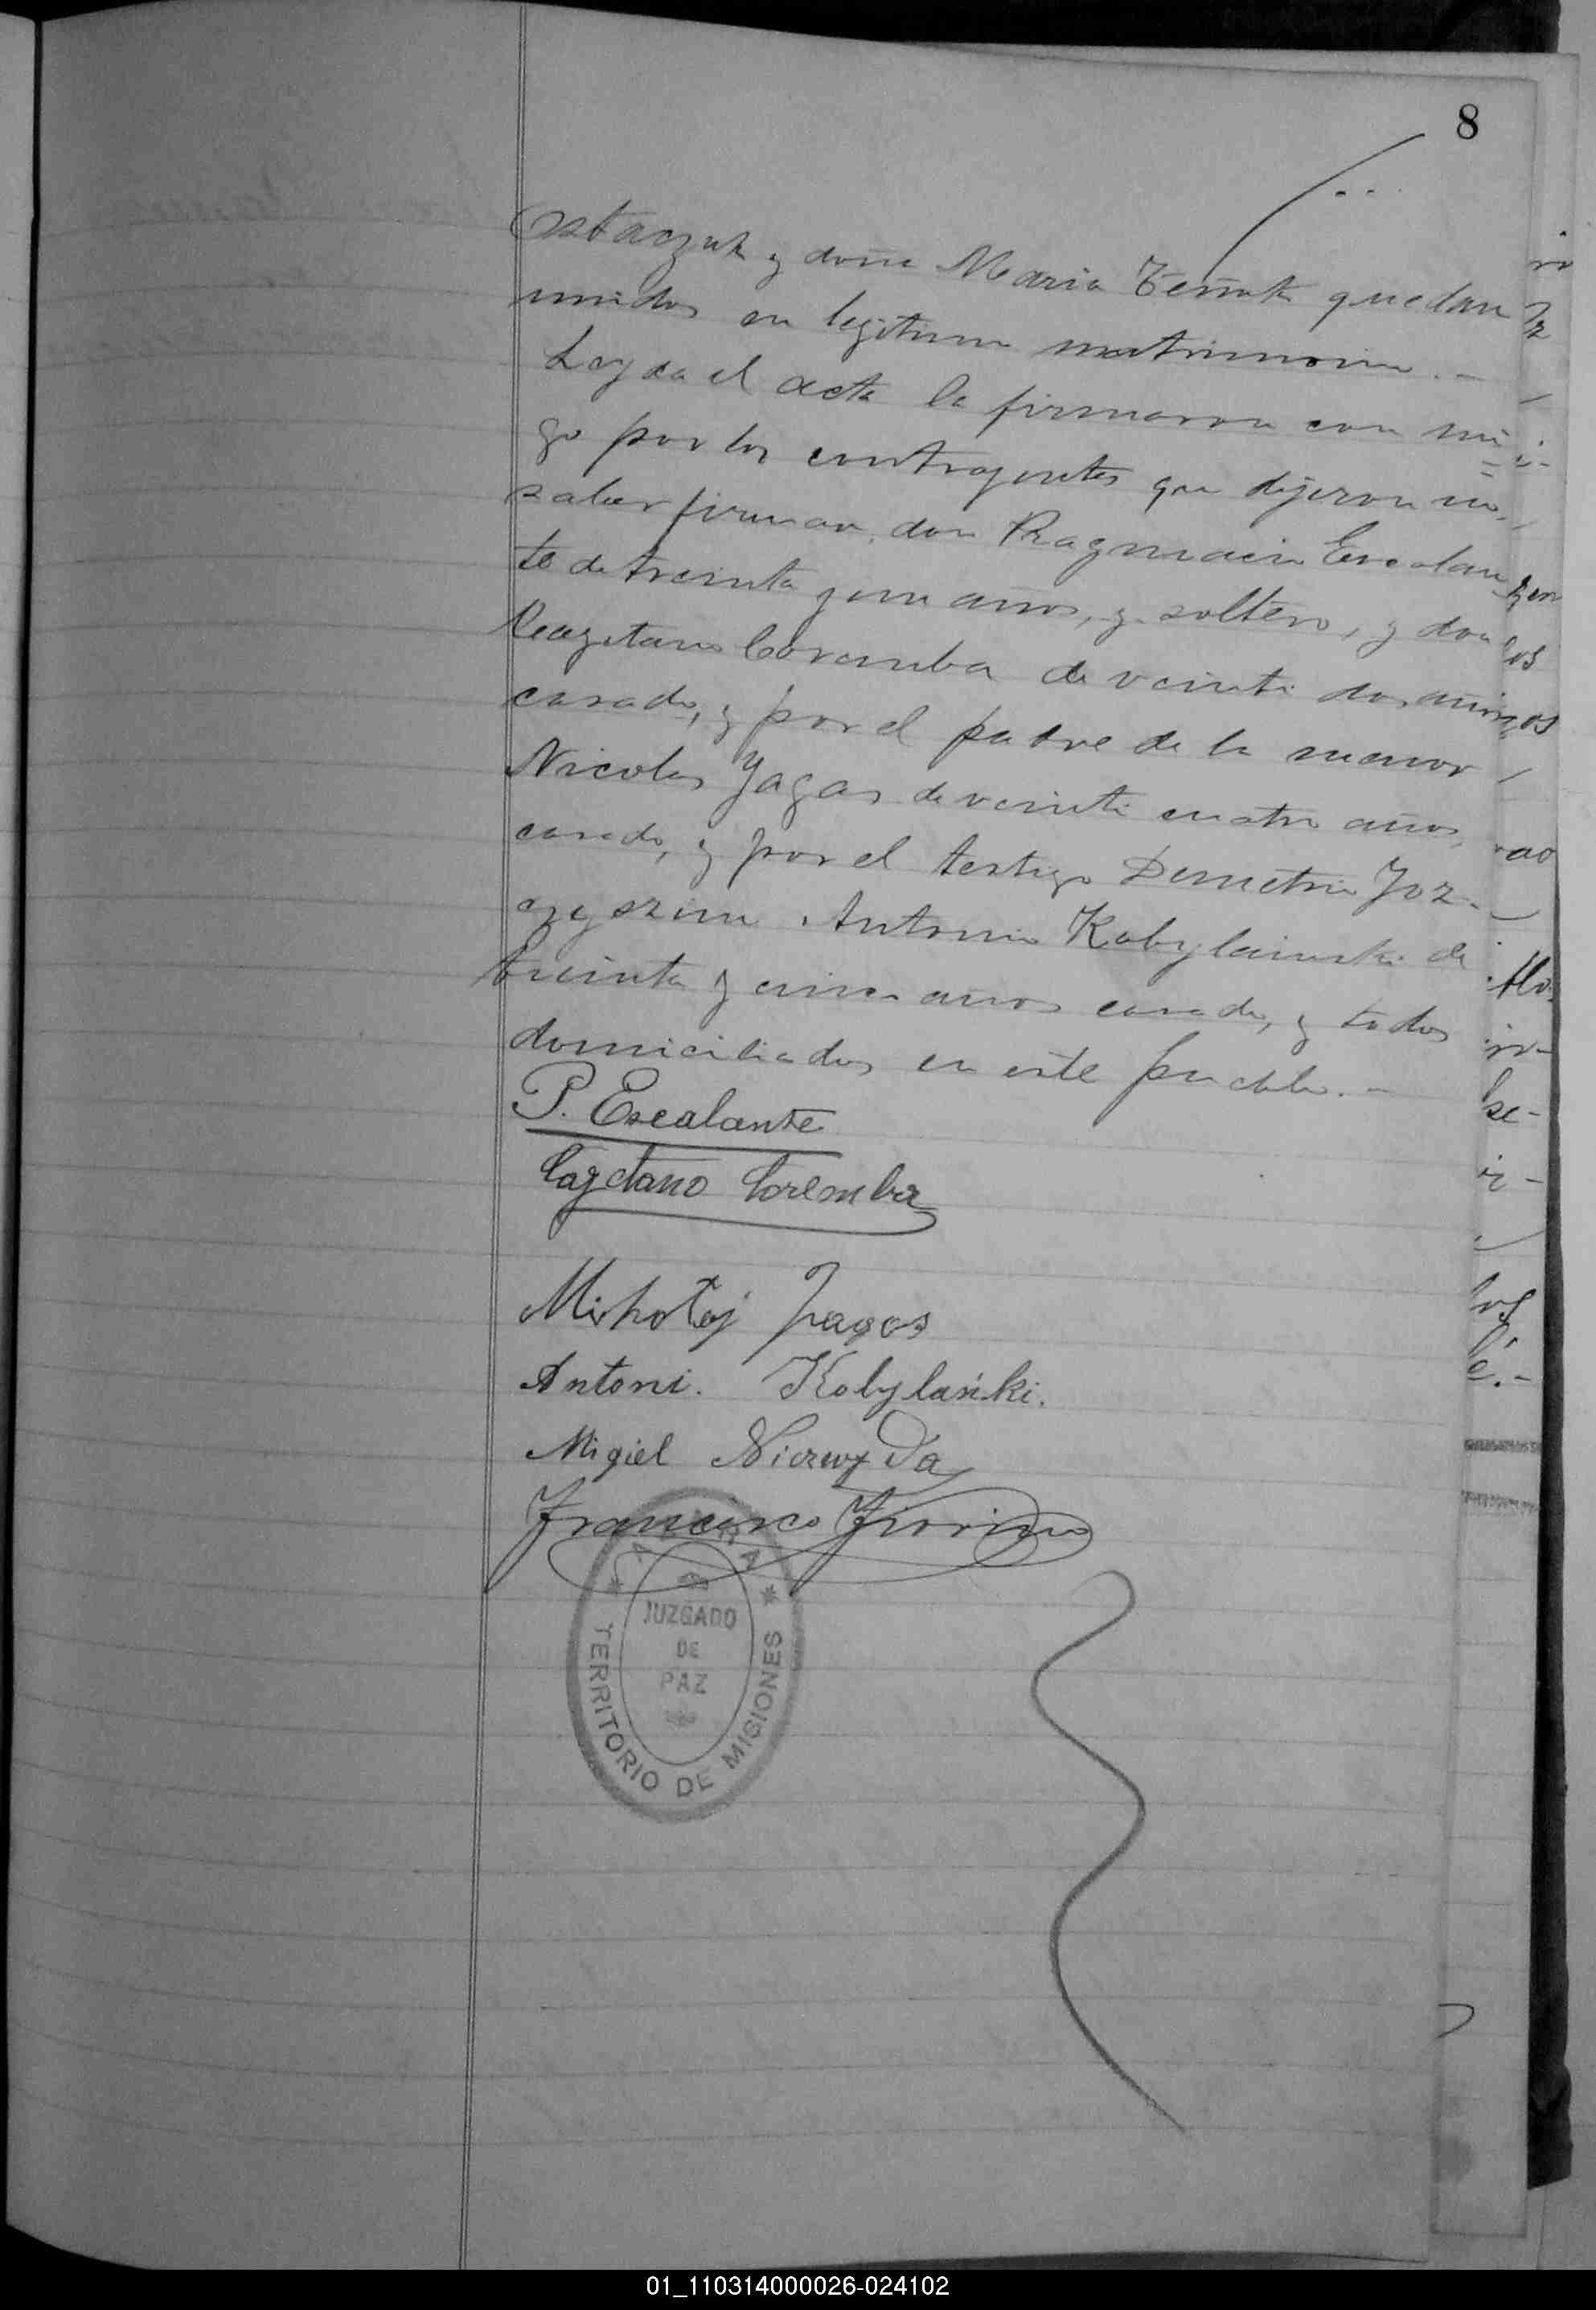 8
Ostaczuk y doña Maria quedan
unidos en legitimo matrimonio.-
Leyda el acta la firmaron con mi
go por los contrayentes que dijeron no
saber firmar, don Escalan
te de treinta y un años, y soltero, y don
Cayetano Coremba de veinte dos años
casado, y por el padre de la menor
Nicolas Jagas de veinte cuatro años,
casado, y por el testigo Demetrio Joz-
Antonio Kobylainski de
treinta y cinco años casado, y todos
domiciliados en este pueblo.-
P. Escalante
Caydano Coremba
Mikołaj Jagos
Antoni. Kobylański.
Migiel
Francisco Fiorino
JUZGADO
DE
PAZ
TERRITORIO DE MISIONES
01_110314000026-024102